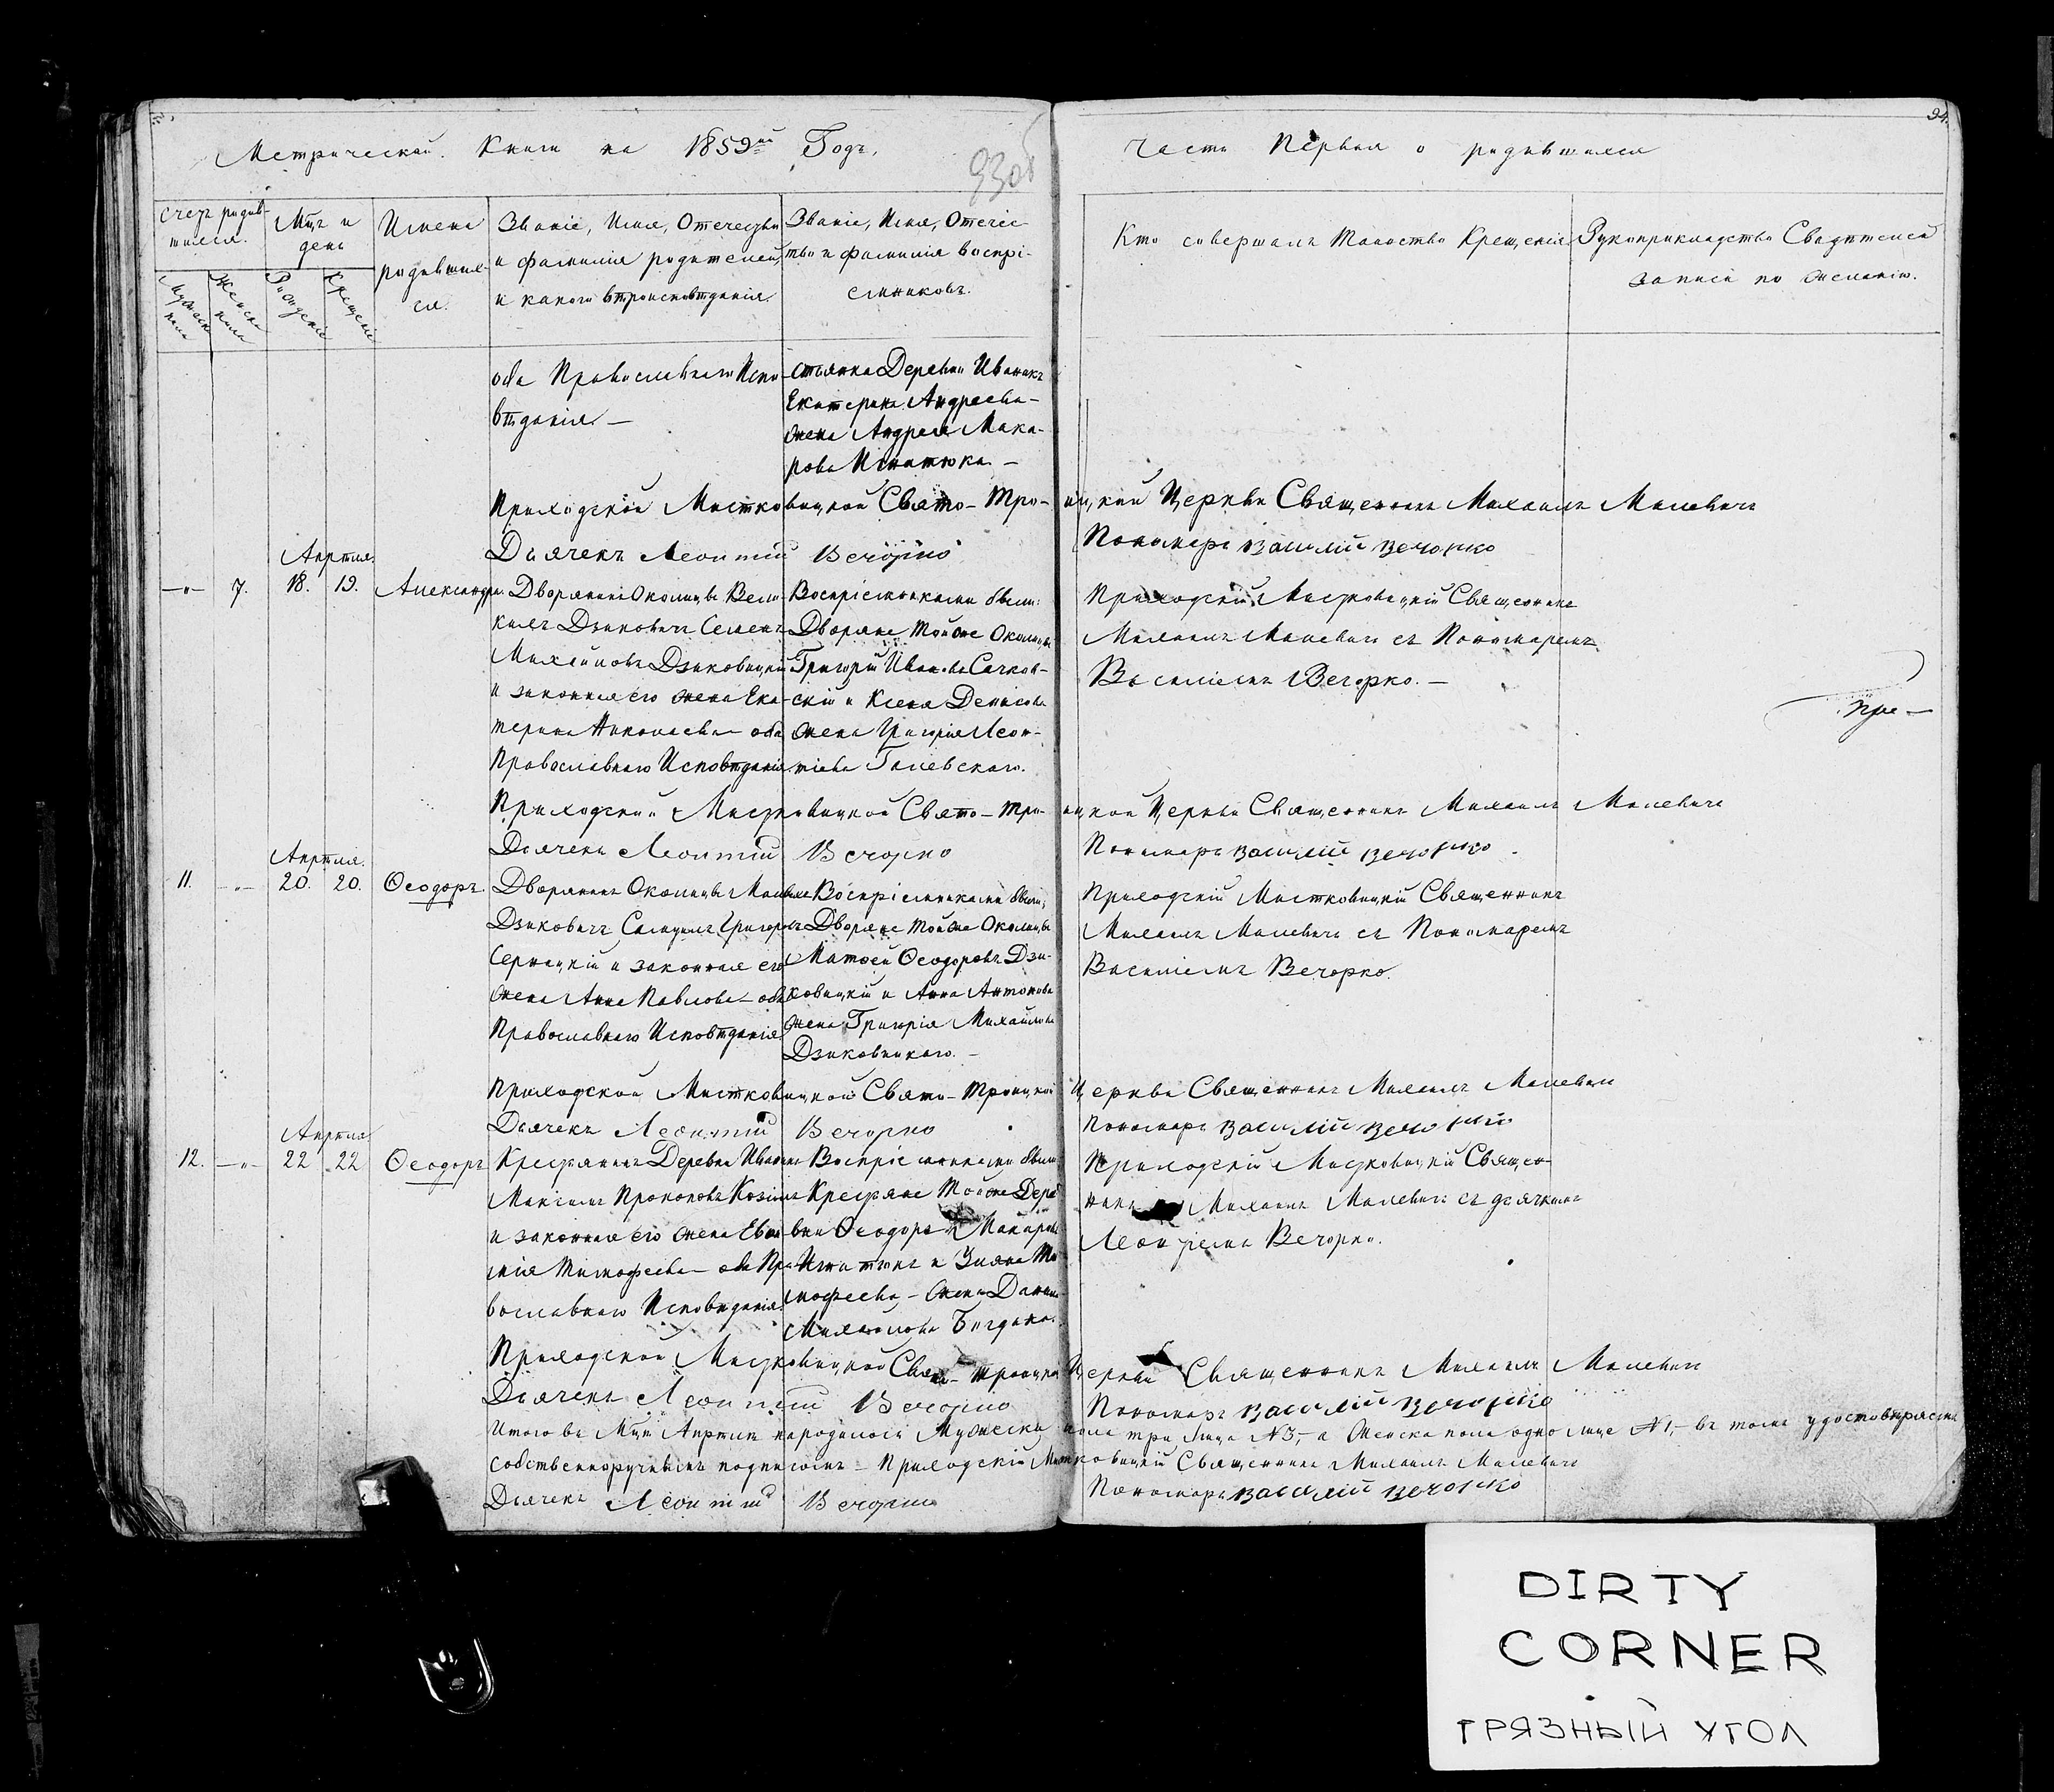 94.
Метрической Книги на 1859ый Годъ,
93об
Часть Первая о родившихся
Счетъ родив-
шихся.
Мужеска
пола
Женска
пола
Мѣц и
день
Рожденіе
Крещеніе
Имена
родивших-
ся.
Званіе, Имя, Отечество
и фамилія родителей,
и какого вѣроисповѣданія.
Званіе, Имя, Отечес-
тво и фамилія воспрі-
емниковъ.
Кто совершалъ Таинство Крещенія
Рукоприкладство Свидѣтелей
записи по желанію.
оба Православнаго Испо-
вѣданія. —
стьянка Деревни Иваникъ
Екатерина Андреева —
жена Андрея Мака-
рова Игнатюка. —
Приходской Мистковицкой Свято-Тро- ицкой Церкви Священникъ Михаилъ Малевичъ
Дьячекъ Леонтій Вечорко
Пономарь Василій Вечорко
— " — 7.
Апрѣля
18. 19.
Александра
Дворянинъ Околицы Вели-
кихъ Дзиковичъ Семенъ
Михайловъ Дзиковицкій
и законная его жена Ека-
терина Николаева — оба
Православнаго Исповѣданія
Воспріемниками были:
Дворяне тойже Околицы
Григорій Ивановъ Сачков-
скій и Ксенія Денисова
жена Григорія Леон-
тіева Галевскаго.
Приходскій Мистковицкій Священникъ
Михаилъ Малевичъ съ Пономаремъ
Василіемъ Вечорко. —
Приходской Мистковицкой Свято-Тро- ицкой Церкви Священникъ Михаилъ Малевичъ
Дьячекъ Леонтій Вечорко
Пономарь Василій Вечорко
11. — " —
Апрѣля
20. 20.
Ѳеодоръ
Дворянинъ Околицы Малыхъ
Дзиковичъ Самуилъ Григоровъ
Сернецкій и законная его
жена Анна Павлова — оба
Православнаго Исповѣданія
Воспріемниками были;
Дворяне тойже Околицы
Матѳей Ѳеодоровъ Дзи-
ковицкій и Анна Антонова
жена Григорія Михайлова
Дзиковицкаго. —
Приходскій Мистковицкій Священникъ
Михаилъ Малевичъ съ Пономаремъ
Василіемъ Вечорко.
Приходской Мистковицкой Свято-Троицкой Церкви Священникъ Михаилъ Малевичъ
Дьячекъ Леонтій Вечорко
Пономарь Василій Вечорко
12. — " —
Апрѣля
22 22
Ѳеодоръ
Крестьянинъ Деревни Иваникъ
Максимъ Прокоповъ
и законная его жена
Тимофеева — оба Пра-
вославнаго Исповѣданія
Воспріемниками были
Крестьяне тойже Дере-
вни Ѳеодоръ Макаровъ
Игнатюкъ и Ти-
мофеева — жена
Михайлова
Приходскій Мистковицкій Священ-
никъ Михаилъ Малевичъ съ дьячкомъ
Леонтіемъ Вечорко.
Приходской Мистковицкой Свято-Троицкой Церкви Священникъ Михаилъ Малевичъ
Дьячекъ Леонтій Вечорко
Пономарь Василій Вечорко
Итого въ Мцѣ Апрѣлѣ народилось Мужеска пола три лица № 3, — а Женска пола одно лице № 1, — въ томъ удостовѣряемъ
собственноручнымъ подписомъ — Приходскій Мистковицкій Священникъ Михаилъ Малевичъ
Дьячекъ Леонтій Вечорко
Пономарь Василій Вечорко
DIRTY
CORNER
ГРЯЗНЫЙ УГОЛ